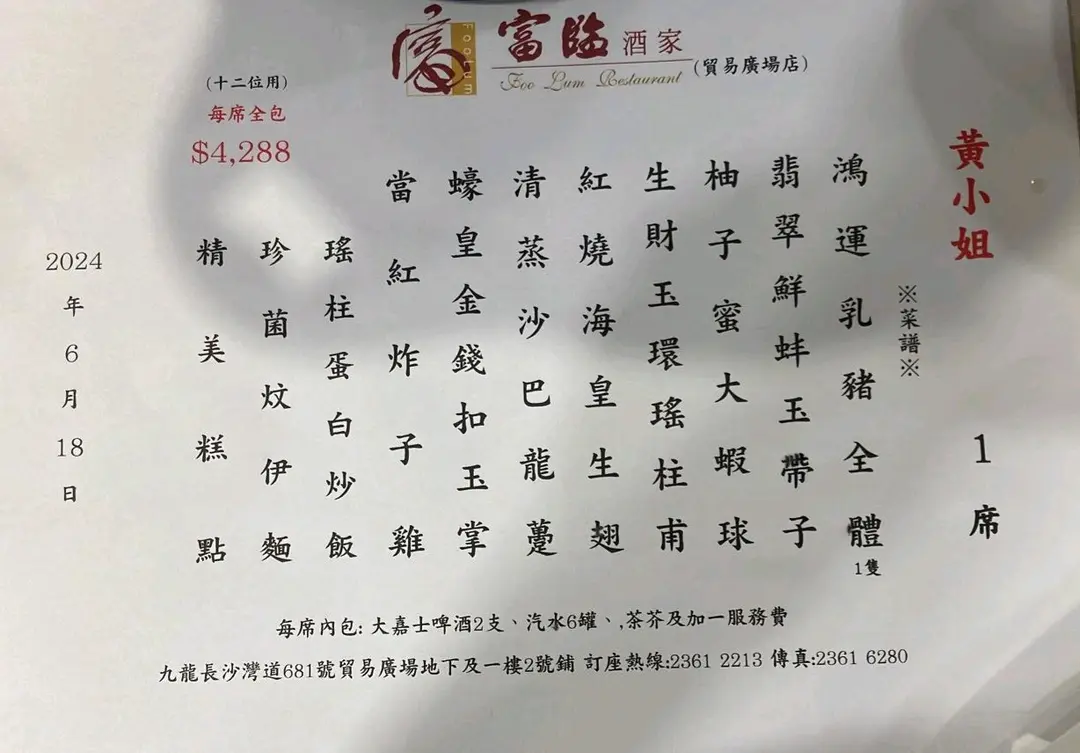 富 FOOLUM 富臨酒家
Foo Lum Restaurant
(貿易廣場店)
黃小姐 1席
※菜譜※
鴻運乳豬全體1隻
翡翠鮮蚌玉帶子
柚子蜜大蝦球
生財玉環瑤柱甫
紅燒海皇生翅
清蒸沙巴龍躉
蠔皇金錢扣玉掌
當紅炸子雞
瑤柱蛋白炒飯
珍菌炆伊麵
精美糕點
(十二位用)
每席全包
$4,288
2024年6月18日
每席內包: 大嘉士啤酒2支、汽水6罐、,茶芥及加一服務費
九龍長沙灣道681號貿易廣場地下及一樓2號鋪 訂座熱線:2361 2213 傳真:2361 6280